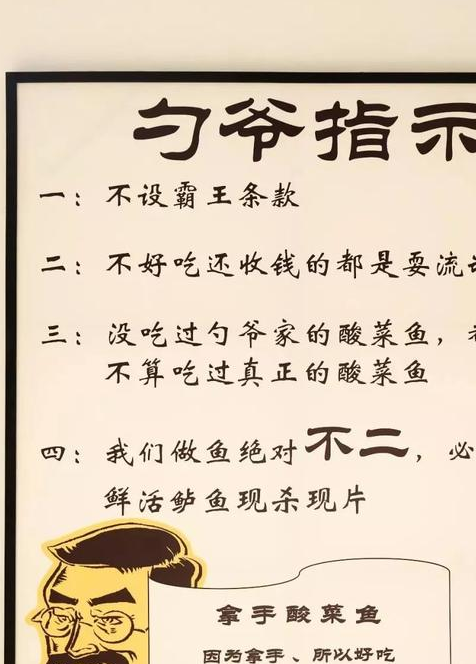 勺爷指示
一：不设霸王条款
二：不好吃还收钱的都是耍流
三：没吃过勺爷家的酸菜鱼，
不算吃过真正的酸菜鱼
四：我们做鱼绝对不二，必
鲜活鲈鱼现杀现片
拿手酸菜鱼
因为拿手、所以好吃